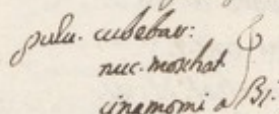 pulu. cubebar:
nuc. moschat
cinamomi a ʒi.